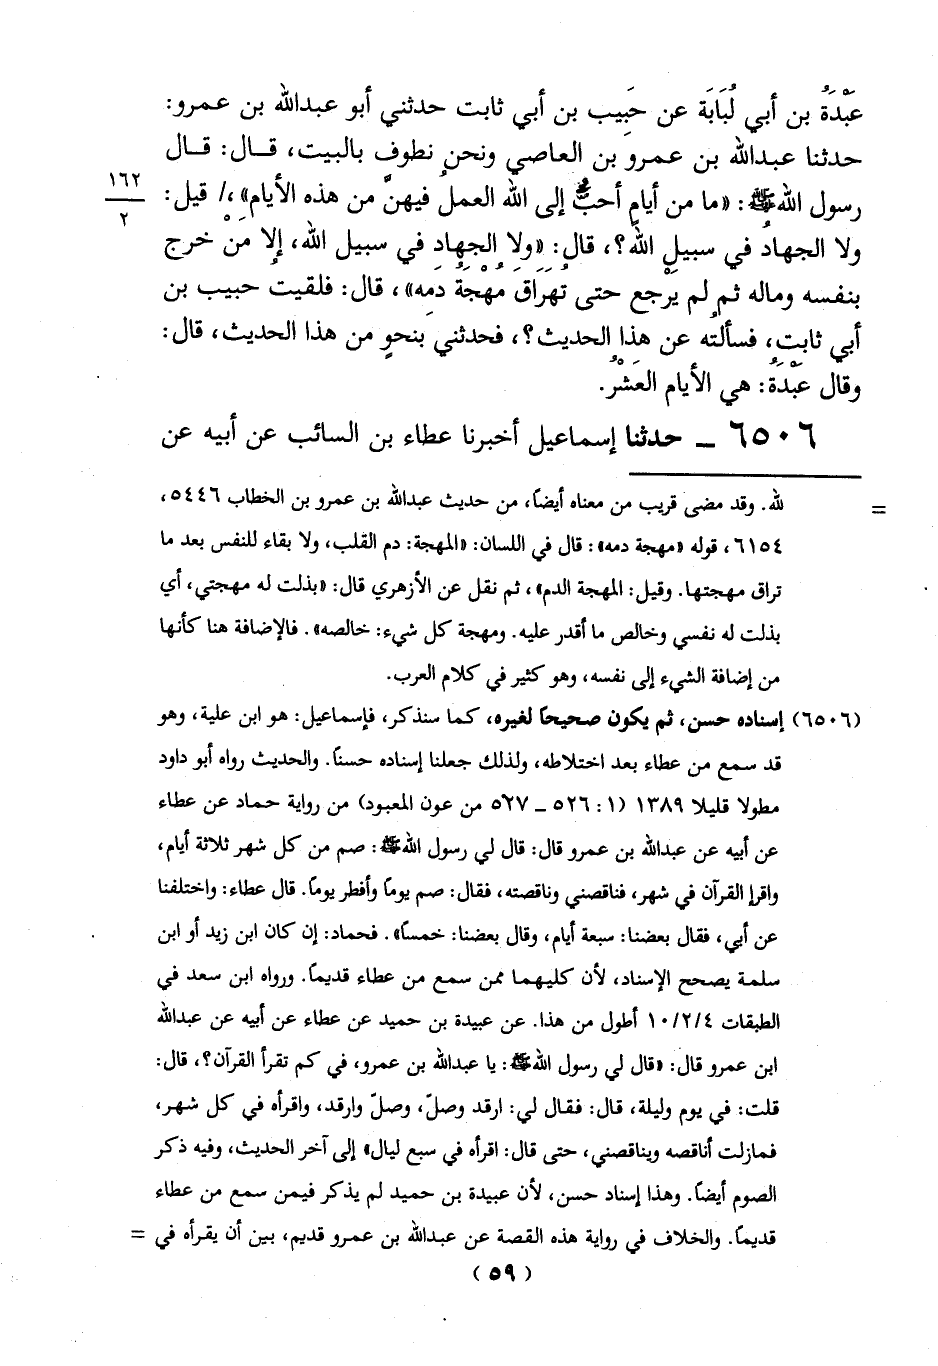 عَبْدَةُ بن أبي لُبَابَة عن حَبِيب بن أبي ثابت حدثني أبو عبدالله بن عمرو:
حدثنا عبدالله بن عمرو بن العاصي ونحن نطوف بالبيت، قـال: قـال
رسول الله ﷺ: «ما من أيامٍ أحبُّ إلى الله العملُ فيهنَّ من هذه الأيام»،/ قيل:
١٦٢
٢
ولا الجهادُ في سبيل الله؟، قال: «ولا الجهاد في سبيل الله، إلا مَنْ خرج
بنفسه وماله ثم لم يَرْجع حتى تُهَرَاق مُهْجَةُ دَمِه»، قال: فلقيت حبيب بن
أبي ثابت، فسألتُه عن هذا الحديث؟، فحدثني بنحوٍ من هذا الحديث، قال:
وقال عَبْدَةُ: هي الأيام العَشْرُ.
٦٥٠٦ ــ حدثنا إسماعيل أخبرنا عطاء بن السائب عن أبيه عن
= لله. وقد مضى قريب من معناه أيضاً، من حديث عبدالله بن عمرو بن الخطاب ٥٤٤٦،
٦١٥٤، قوله «مهجة دمه»: قال في اللسان: «المهجة: دم القلب، ولا بقاء للنفس بعد ما
تراق مهجتها. وقيل: المهجة الدم»، ثم نقل عن الأزهري قال: «بذلت له مهجتي، أي
بذلت له نفسي وخالص ما أقدر عليه. ومهجة كل شيء: خالصه». فالإضافة هنا كأنها
من إضافة الشيء إلى نفسه، وهو كثير في كلام العرب.
(٦٥٠٦) إسناده حسن، ثم يكون صحيحاً لغيره، كما سنذكر، فإسماعيل: هو ابن علية، وهو
قد سمع من عطاء بعد اختلاطه، ولذلك جعلنا إسناده حسناً. والحديث رواه أبو داود
مطولا قليلا ١٣٨٩ (١: ٥٢٦ ــ ٥٢٧ من عون المعبود) من رواية حماد عن عطاء
عن أبيه عن عبدالله بن عمرو قال: قال لي رسول الله ﷺ: صم من كل شهر ثلاثة أيام،
واقرإ القرآن في شهر، فناقصني وناقصته، فقال: صم يوماً وأفطر يوماً. قال عطاء: واختلفنا
عن أبي، فقال بعضنا: سبعة أيام، وقال بعضنا: خمساً». فحماد: إن كان ابن زيد أو ابن
سلمة يصحح الإسناد، لأن كليهما ممن سمع من عطاء قديماً. ورواه ابن سعد في
الطبقات ١٠/٢/٤ أطول من هذا. عن عبيدة بن حميد عن عطاء عن أبيه عن عبدالله
ابن عمرو قال: «قال لي رسول الله ﷺ: يا عبدالله بن عمرو، في كم تقرأ القرآن؟، قال:
قلت: في يوم وليلة، قال: فقال لي: ارقد وصلّ، وصلّ وارقد، واقرأه في كل شهر،
فمازلت أناقصه ويناقصني، حتى قال: اقرأه في سبع ليال» إلى آخر الحديث، وفيه ذكر
الصوم أيضاً. وهذا إسناد حسن، لأن عبيدة بن حميد لم يذكر فيمن سمع من عطاء
قديماً. والخلاف في رواية هذه القصة عن عبدالله بن عمرو قديم، بين أن يقرأه في =
(٥٩)